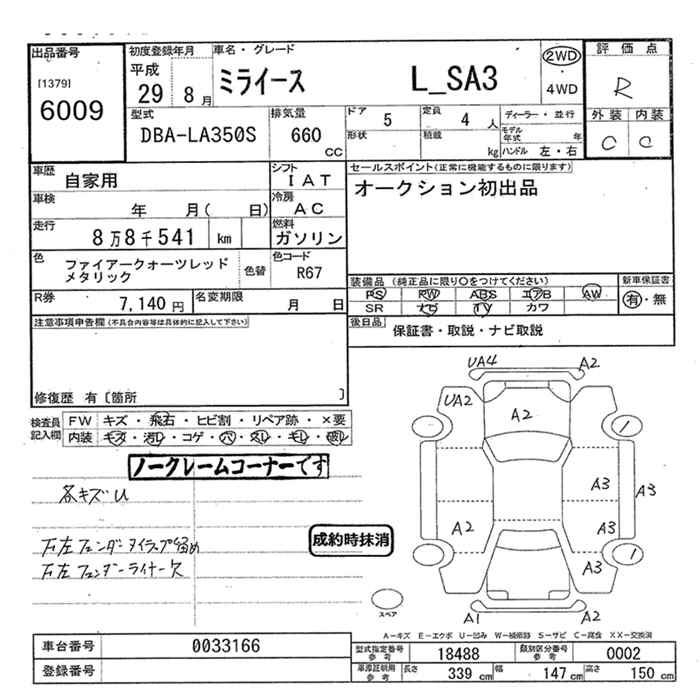 出品番号
[1379]
6009
初度登録年月
平成
29 8月
車名・グレード
ミライース L_SA3
2WD
4WD
評価点
R
外装 内装
C C
型式
DBA-LA350S
排気量
660 CC
ドア 5
定員 4 人
形状
積載 kg
ディーラー・並行
モデル年式 年
ハンドル 左・右
車歴
自家用
シフト
IAT
車検
年 月( 日)
冷房
AC
走行
8万8千541 km
燃料
ガソリン
色
ファイアークォーツレッド
メタリック
色替
色コード
R67
R券
7,140円
名変期限
月 日
セールスポイント(正常に機能するものに限ります)
オークション初出品
装備品 (純正品に限り○をつけてください)
新車保証書
PS RW ABS エアB AW
SR ナビ TV カワ
有・無
後日品
保証書・取説・ナビ取説
注意事項申告欄(不具合内容等は具体的に記入して下さい)
修復歴 有〔箇所 〕
検査員
記入欄
FW キズ・飛石・ヒビ割・リペア跡・×要
内装 キズ・汚レ・コゲ・穴・スレ・キレ・破レ
ノークレームコーナーです
各キズU
左フェンダータイラップ留め
左フェンダーライナー欠
成約時抹消
UA4
A2
UA2
A2
A3
A3
A2
A3
A3
A1
A2
スペア
A-キズ E-エクボ U-凹み W-補修跡 S-サビ C-腐食 XX-交換済
車台番号
0033166
登録番号
型式指定番号
参考
18488
類別区分番号
参考
0002
車庫証明用
参考
長さ 339 cm
幅 147 cm
高さ 150 cm